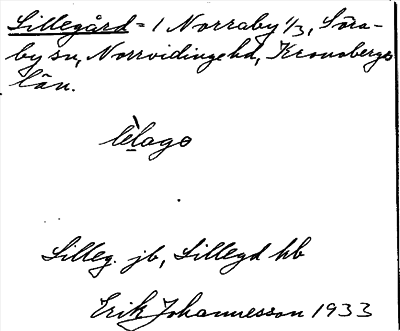 Lillegård = 1 Norraby 1/3, Söra-
by sn, Norrvidinge hd, Kronobergs
län.
lèlago
Lilleg. jb, Lillegd hb
Erik Johannesson 1933